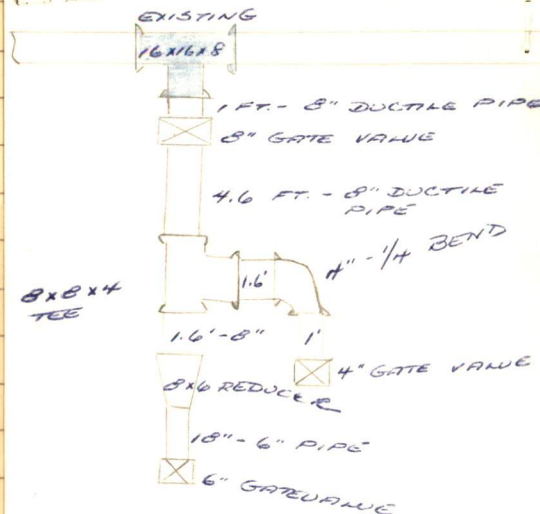 EXISTING
16x16x8
1 FT. - 8" DUCTILE PIPE
8" GATE VALVE
4.6 FT. - 8" DUCTILE
PIPE
4" - 1/4 BEND
1.6'
8x8x4
TEE
1.6'-8"
1'
4" GATE VALVE
8x6 REDUCER
18" - 6" PIPE
6" GATEVALVE